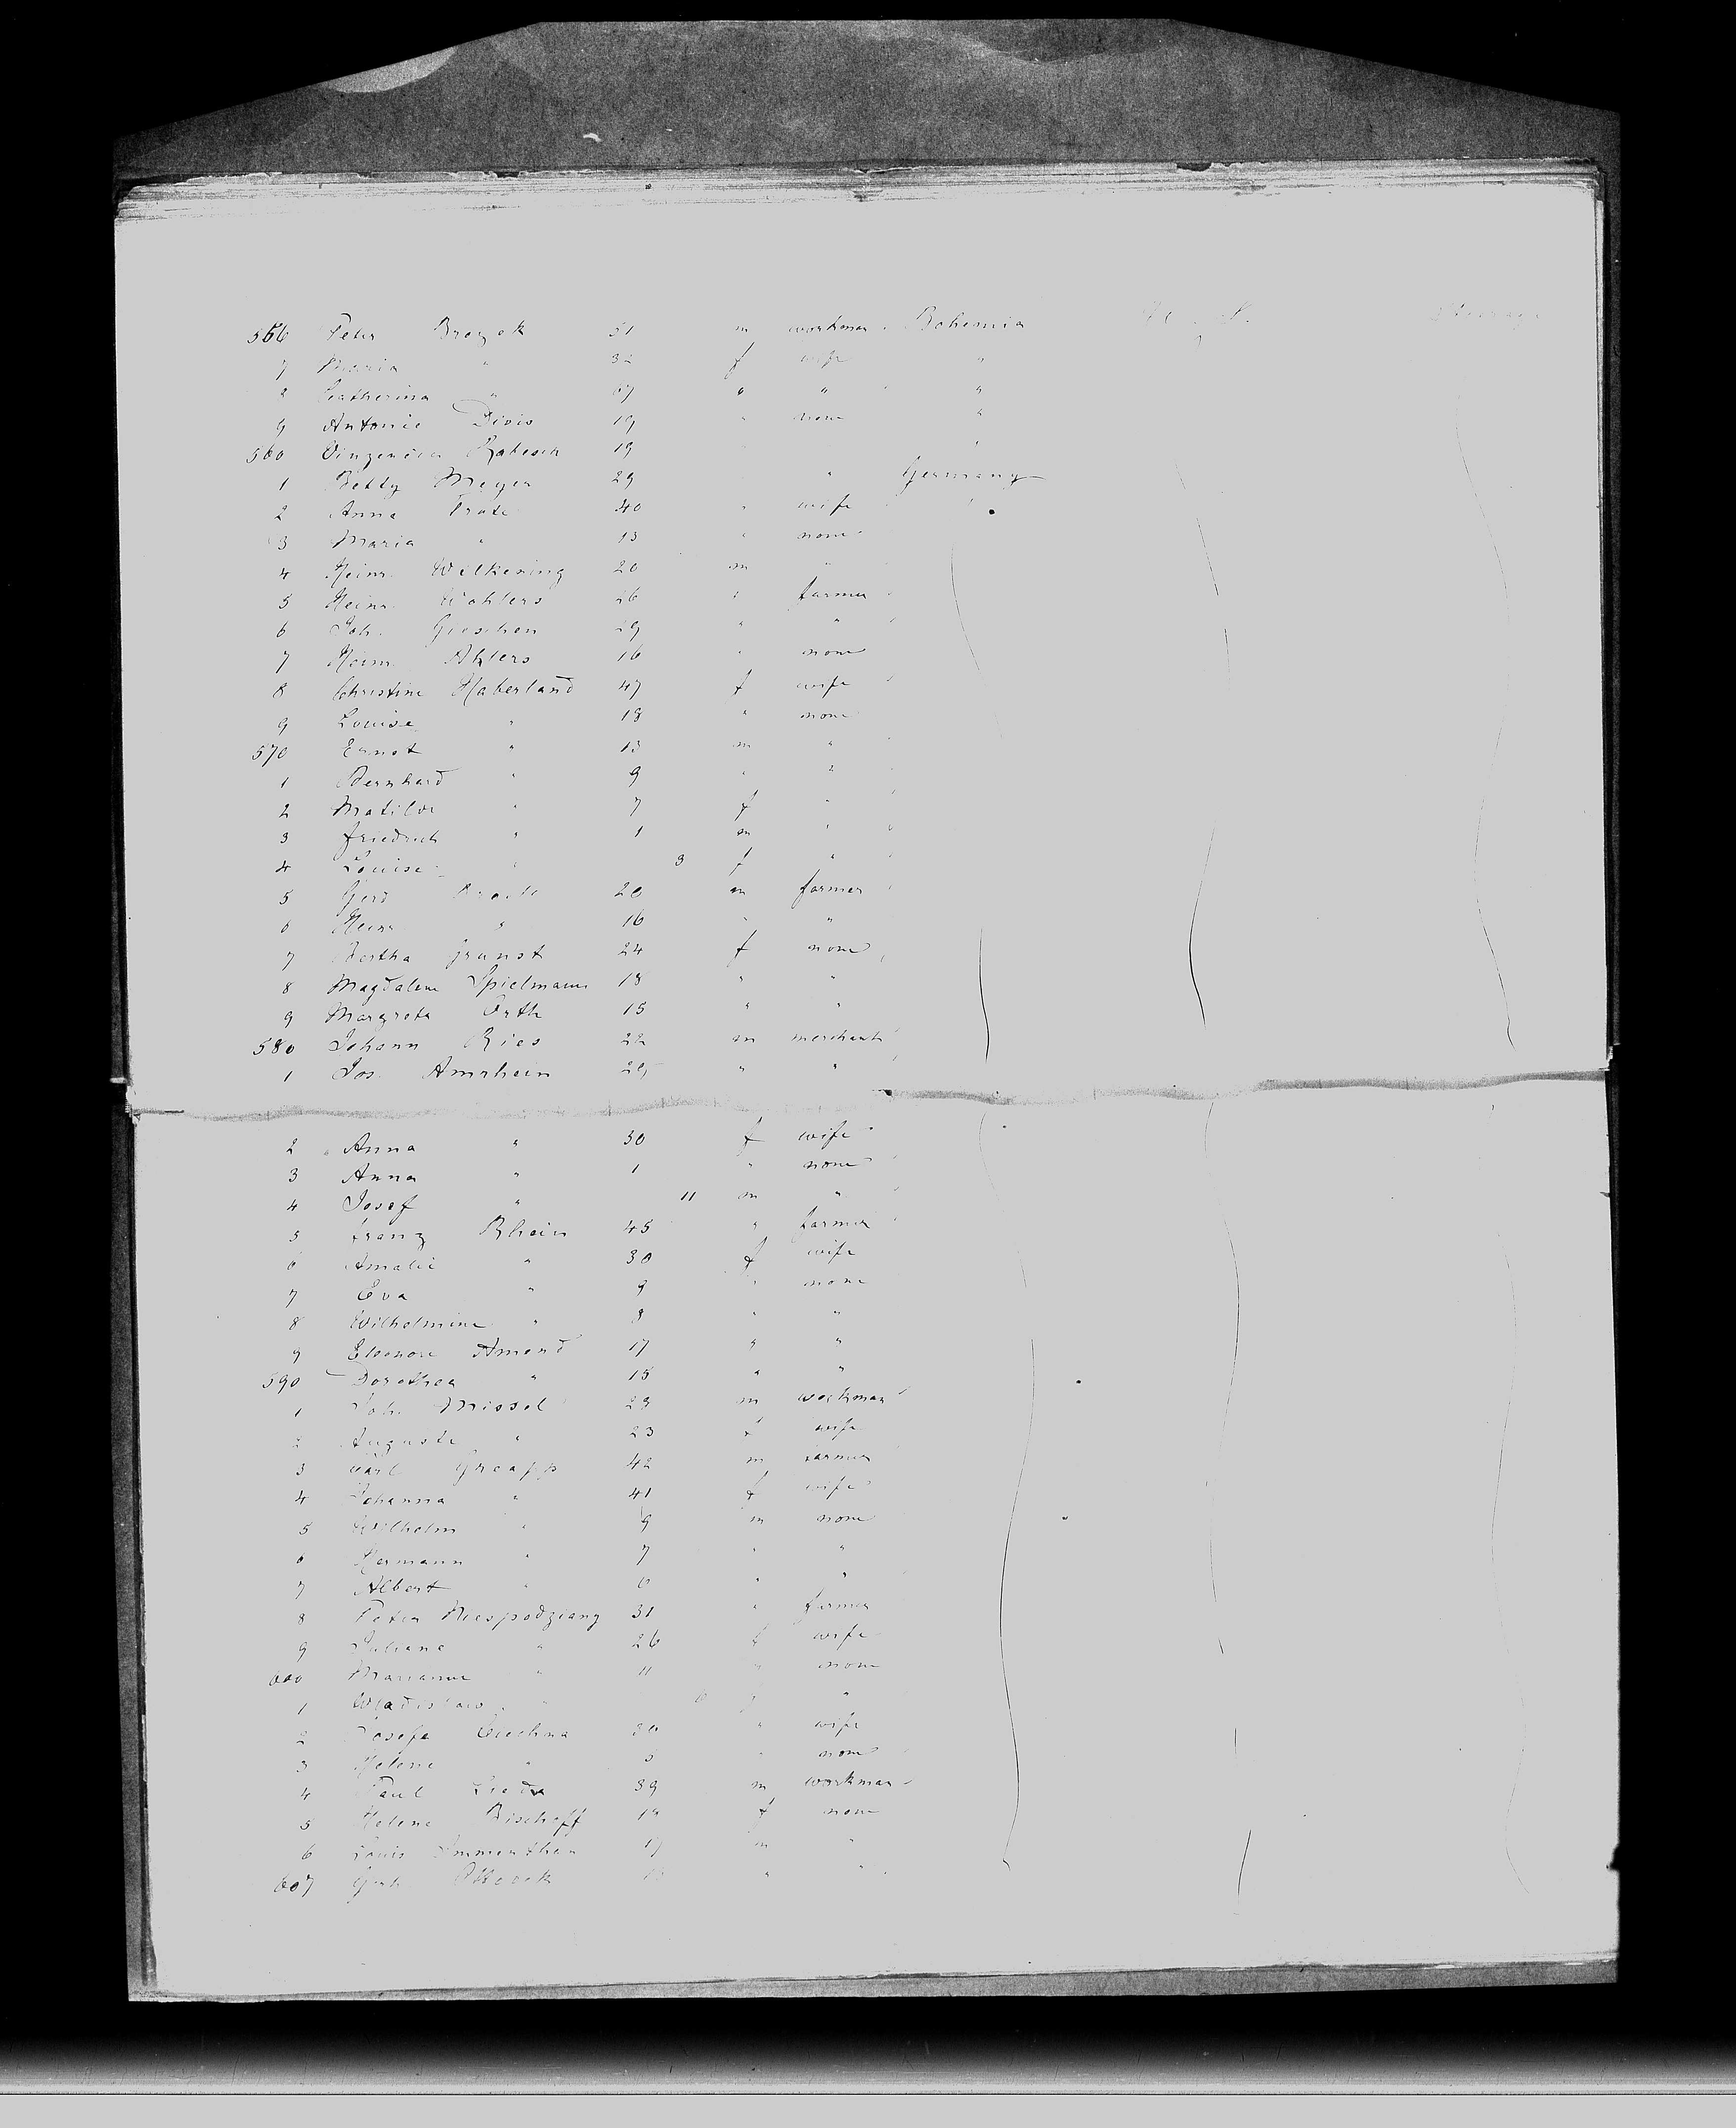 556 Peter Brozek 51 m workman Bohemia U. S. Steerage
7 Maria " 32 f wife "
8 Catherina " 67 " " "
9 Antonie Divis 19 " none "
560 Vinzencia 19
1 Betty Meyer 29 " Germany
2 Anna 40 " wife
3 Maria " 13 " none
4 Heinr. Wilkening 20 m "
5 Heinr. Wohlers 26 " farmer
6 Joh. Gieschen 29 " "
7 Heinr. Ahlers 16 " none
8 Christine Haberland 47 f wife
9 Louise " 18 " none
570 Ernst " 13 m "
1 Bernhard " 9 " "
2 Matilde " 7 f "
3 Friedrich " 1 m "
4 Louise " 3 f "
5 Gerd 20 m farmer
6 Heinr " 16 " "
7 Bertha Grunst 24 f none
8 Magdalene Spielmann 18 " "
9 Margreta Orth 15 " "
580 Johann Ries 22 m merchant
1 Jos. Amrhein 25 " "
2 Anna " 30 f wife
3 Anna " 1 " none
4 Josef " 11 m "
5 Franz Rhein 45 " farmer
6 Amalie " 30 f wife
7 Eva " 9 " none
8 Wilhelmine " 8 " "
9 Eleonore Amend 17 " "
590 Dorothea " 15 " "
1 Joh. Missel 23 m workman
2 Auguste " 23 f wife
3 Carl Greapp 42 m farmer
4 Johanna " 41 f wife
5 Wilhelm " 9 m none
6 Hermann " 7 " "
7 Albert " 6 " "
8 Peter Niespodziany 31 " farmer
9 Juliane " 26 f wife
600 Marianne " 11 " none
1 Wladislaw " 6 "
2 Josefa 30 " wife
3 Helene " 3 " none
4 Paul 39 m workman
5 Helene Bischoff 18 f none
6 Louis Immenthun 17 m "
607 Gerh. " "